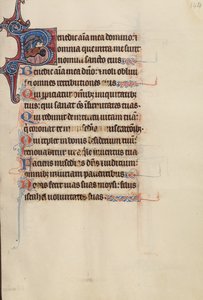 Benedic aĩa mea domino:
omnia que intra me sunt
nomini sancto eius
Benedic aĩa mea dño: noli obliui
omnes retributiones
Qui propitiatur omnibz iniquitatibz
tuis: qui sanat ōes infirmitates tuas.
Qui redimit de interitu uitam tuã:
qui coronat te in misericordia
Qui replet in bonis desiderium tuum:
renouabitur ut aqle iuuentus tua
Faciens misericordias dñs iudicium:
omnibz iniuriam patientibus
Notas fecit uias suas moysi: filiis
israhel uoluntates suas